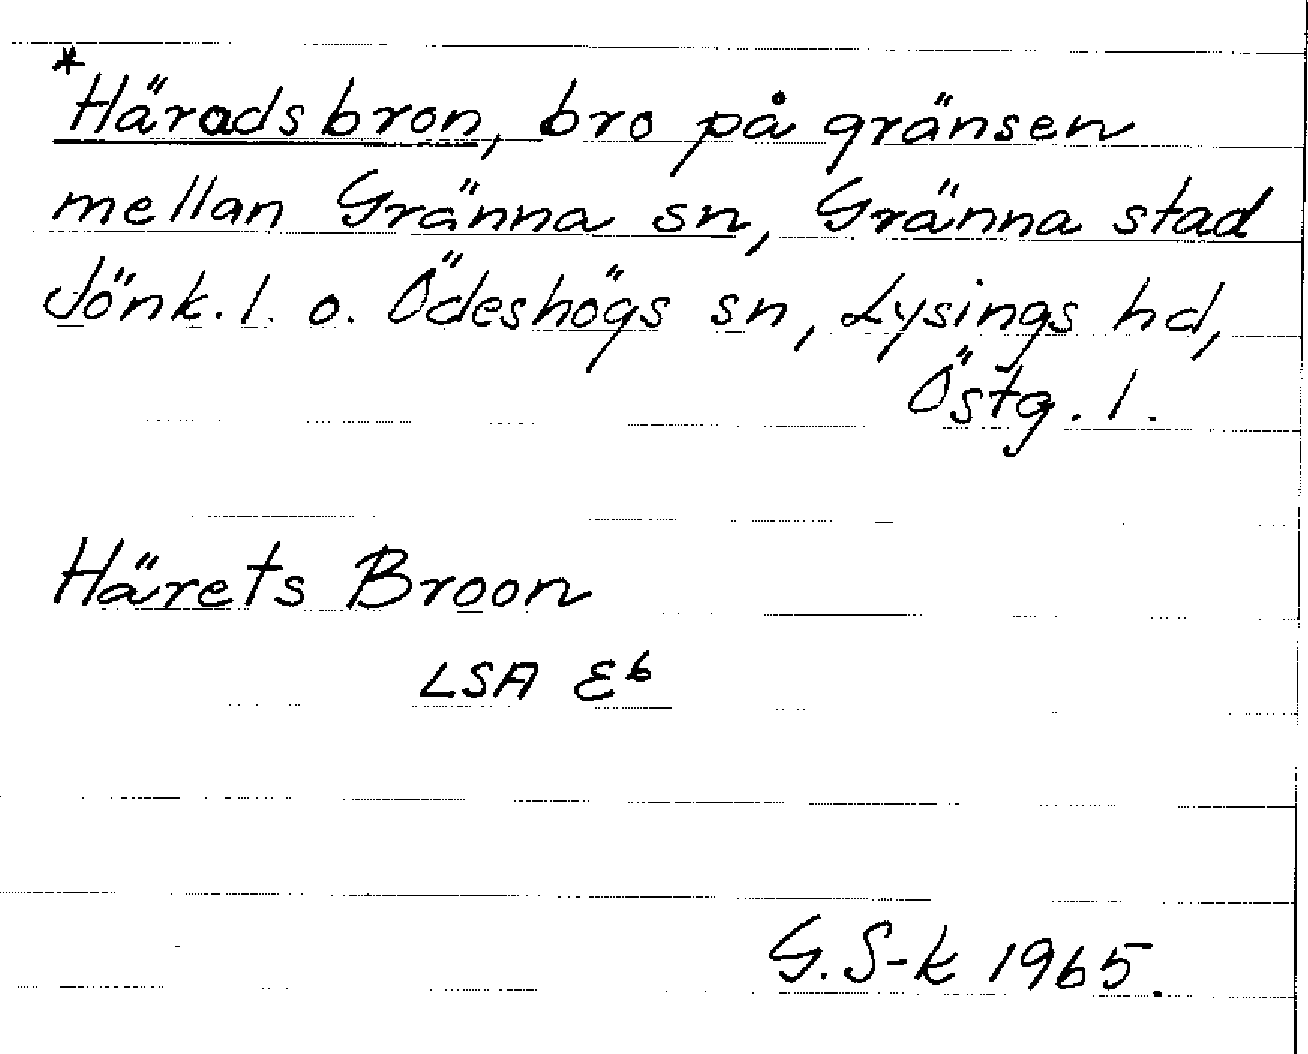 *Häradsbron, bro på gränsen
mellan Gränna sn, Gränna stad
Jönk. l. o. Ödeshögs sn, Lysings hd,
Östg. l.
Härets Broon
LSA E⁶
G. S-k 1965.